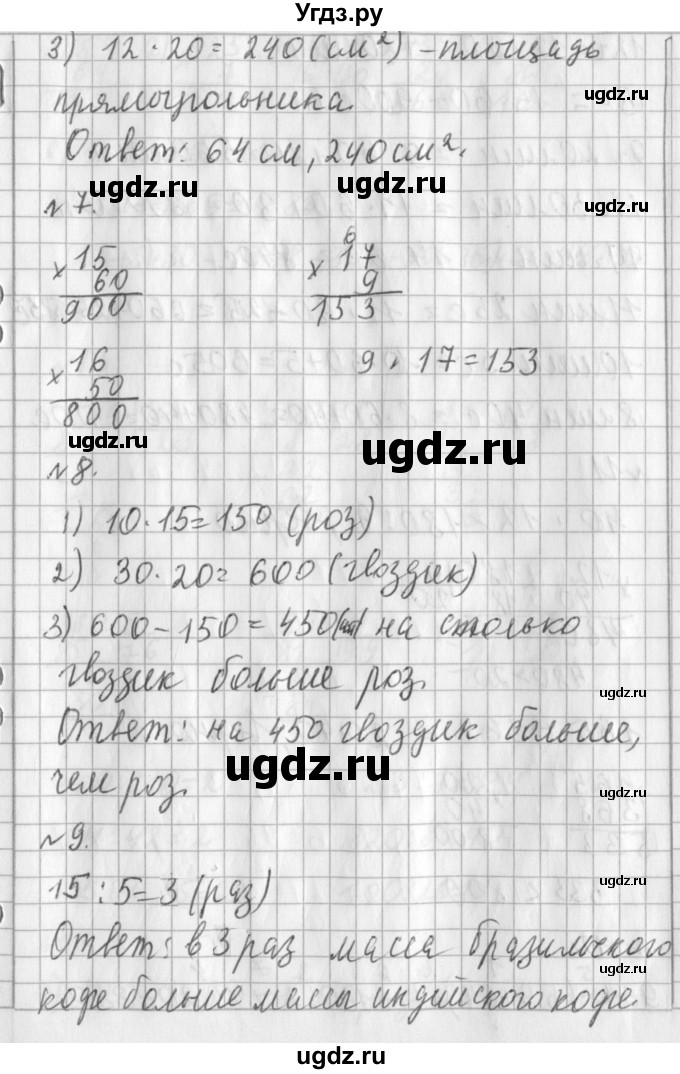 Угдз.ру
3) 12 · 20 = 240 (см²) – площадь
ugdz.ru
прямоугольника.
Ответ: 64 см, 240 см².
ugdz.ru ugdz.ru ugdz.ru
№ 7.
× 15 60 900
× 6 17 9 153
× 16 50 800
9 · 17 = 153
ugdz.ru ugdz.ru
№ 8.
1) 10 · 15 = 150 (роз)
2) 30 · 20 = 600 (гвоздик)
3) 600 – 150 = 450 на столько
гвоздик больше роз.
ugdz.ru
Ответ: на 450 гвоздик больше,
ugdz.ru
чем роз.
ugdz.ru
№ 9.
15 : 5 = 3 (раз)
ugdz.ru
Ответ: в 3 раз масса бразильского
ugdz.ru
кофе больше массы индийского кофе.
ugdz.ru